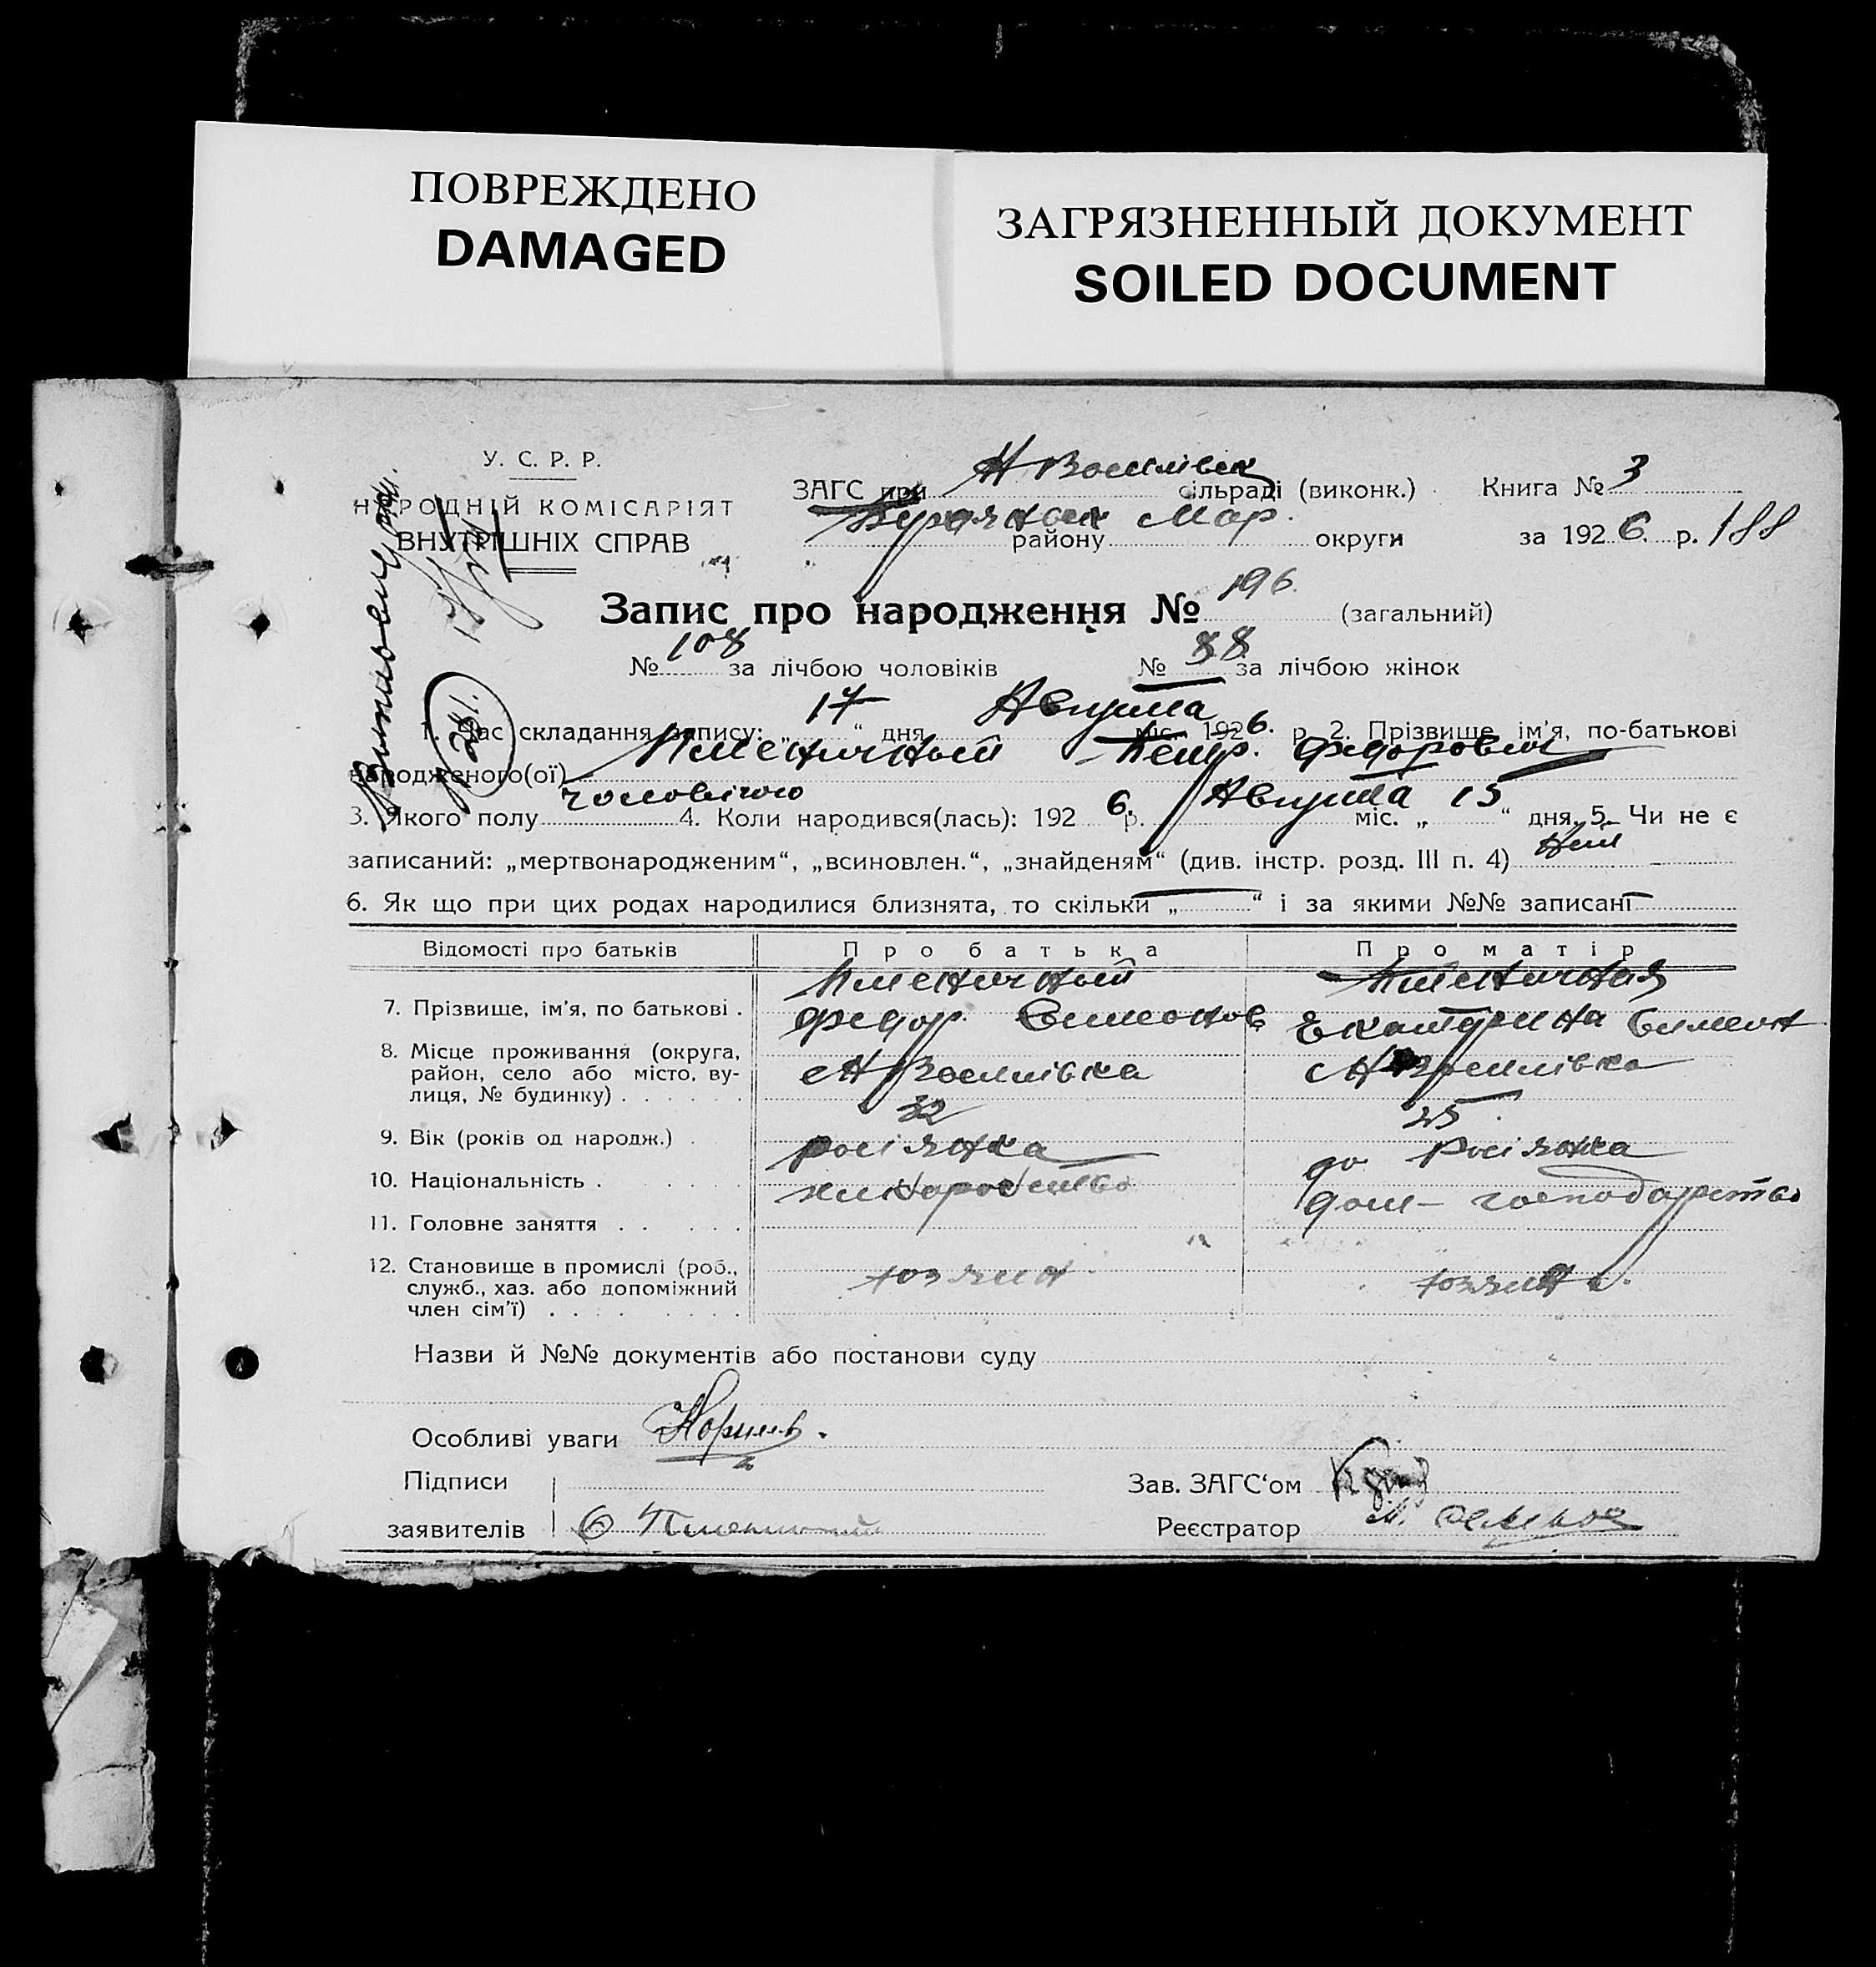 ПОВРЕЖДЕНО
DAMAGED
ЗАГРЯЗНЕННЫЙ ДОКУМЕНТ
SOILED DOCUMENT
У. С. Р. Р.
НАРОДНІЙ КОМІСАРІЯТ
ВНУТРІШНІХ СПРАВ
ЗАГС при Н Василівск сільраді (виконк.) Книга № 3
району Мар. округи за 1926. р. 188
Запис про народження № 196. (загальний)
№ 108 за лічбою чоловіків № 88 за лічбою жінок
1. Час складання запису: „ 17 “ дня Августа міс. 1926. р. 2. Прізвище, ім'я, по-батькові
народженого(ої) Пшеничный Петр. Федорович
3. Якого полу чоловічого 4. Коли народився(лась): 192 6. р. Августа міс. „ 15 “ дня. 5. Чи не є
записаний: „мертвонародженим“, „всиновлен.“, „знайденям“ (див. інстр. розд. III п. 4) Ні
6. Як що при цих родах народилися близнята, то скільки „ — “ і за якими №№ записані —
Відомості про батьків Про батька Про матір
7. Прізвище, ім'я, по батькові . Пшеничный Федор. Симонов Пшеничная Екатерина Симон
8. Місце проживання (округа, район, село або місто, вулиця, № будинку) . . . . . . с Н Василівка с Н Василівка
9. Вік (років од народж.) . 32 25
10. Національність . . . . . росіянка росіянка
11. Головне заняття . . . . . хліборобство дом- господарство
12. Становище в промислі (роб., служб., хаз. або допоміжний член сім'ї) . . . . . . . . хозяин хозяйка.
Назви й №№ документів або постанови суду
Особливі уваги
Підписи
заявителів Пшеничный
Зав. ЗАГС‘ом
Реєстратор